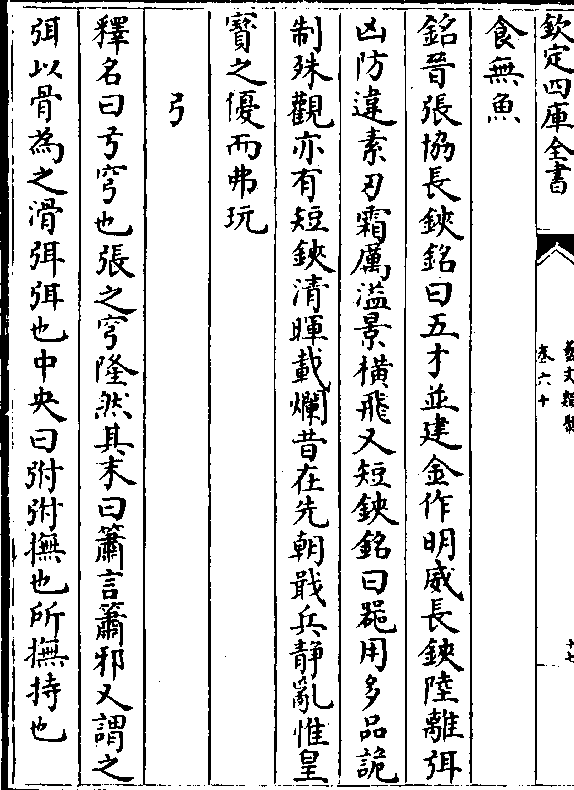 欽定四庫全書
藝文類聚
卷六十
十七
食無魚
銘晉張協長鋏銘曰五才並建金作明威長鋏陸離弭
凶防違素刃霜厲溢景橫飛又短鋏銘曰噐用多品詭
制殊觀亦有短鋏清暉載爛昔在先朝戢兵静亂惟皇
寳之優而弗玩
弓
釋名曰弓穹也張之穹隆然其末曰簫言簫邪又謂之
弭以骨為之滑弭弭也中央曰弣弣撫也所撫持也